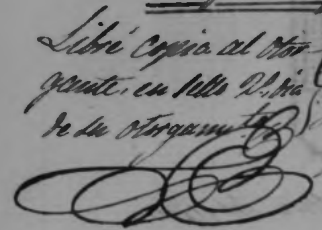 Libré copia al otor-
gante, en sello 2º, dia
de su otorgamto